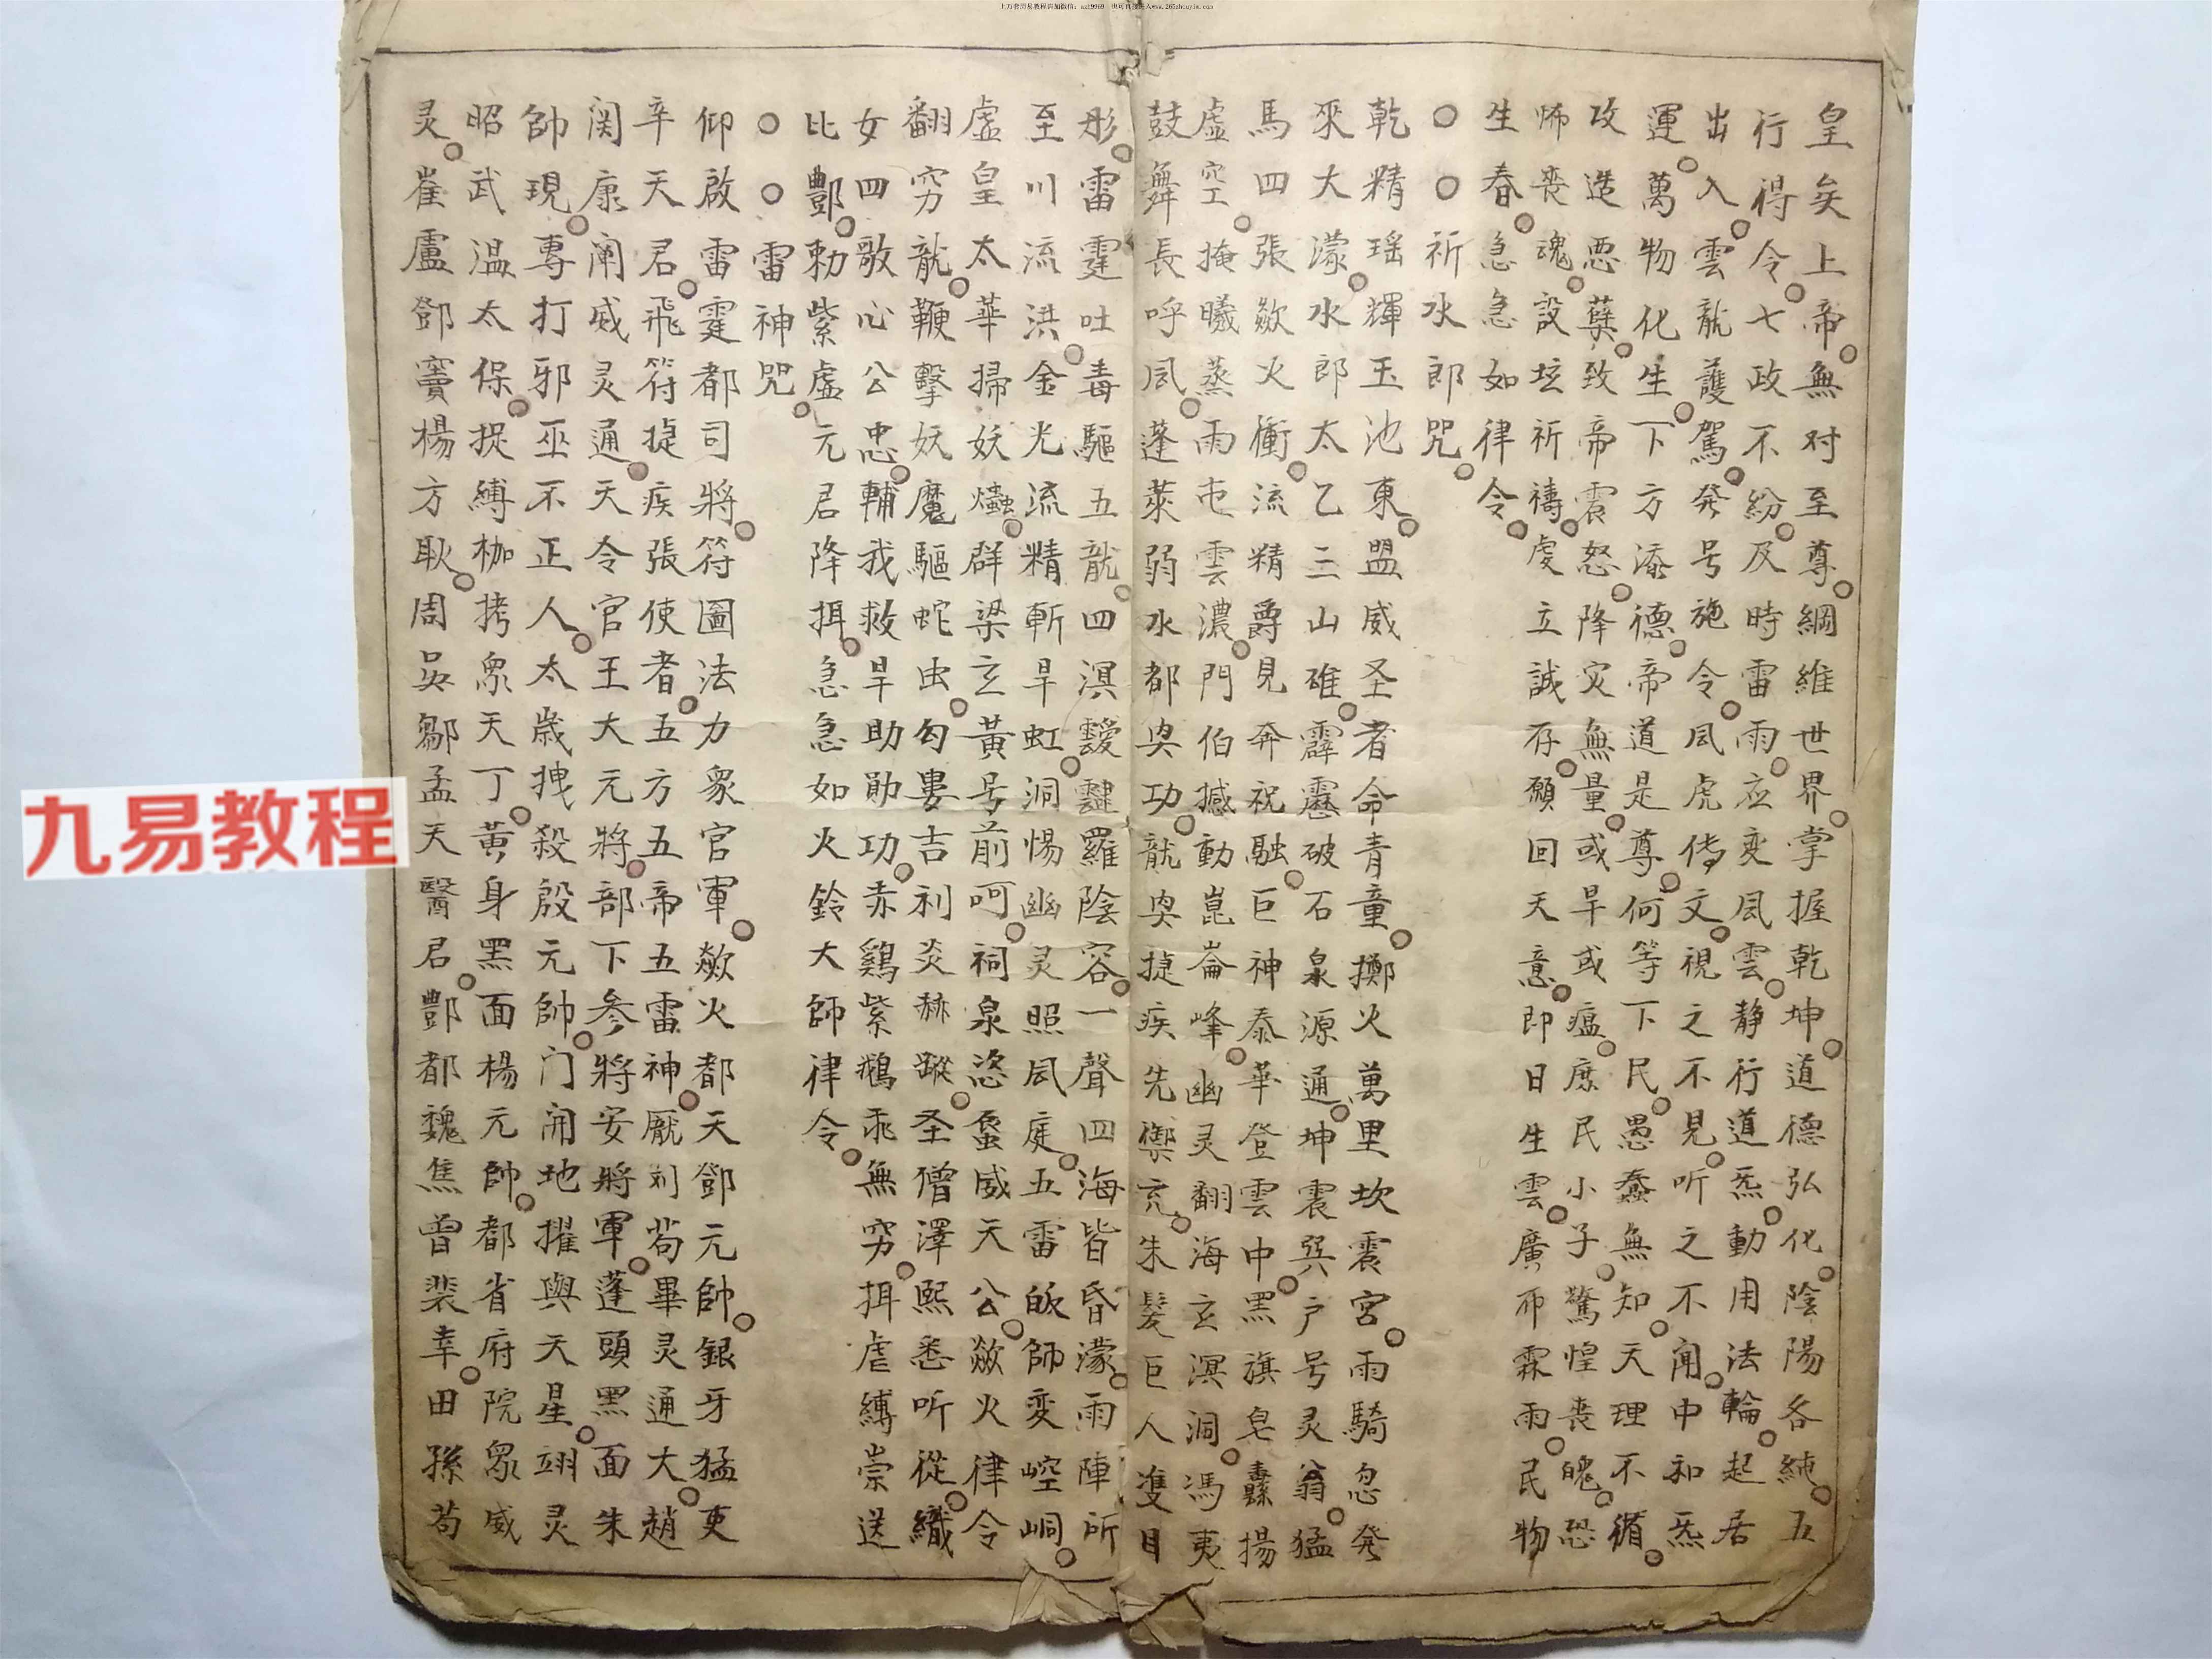 上万套周易教程请加微信：szh9969 也可直接进入www.265zhouyiw.com
皇矣上帝○無对至尊○綱維世界○掌握乾坤○道德弘化○陰陽各純○五
行得令○七政不紛○及時雷雨○应变風雲○静行道炁○動用法輪○起居
出入○雲龍護駕○発号施令○風虎傳文○視之不見○听之不闻○中和炁
運○萬物化生○下方添德○帝道是尊○何等下民○愚蠢無知○天理不循○
攻造悪孽○致帝震怒○降灾無量○或旱或瘟○庶民小子○驚惶丧魄○恐
怖丧魂○設坛祈禱○虔立誠存○願回天意○即日生雲○廣布霖雨○民物
生春○急急如律令○
○○祈水郎咒○
乾精瑶輝玉池東○盟威圣者命青童○擲火萬里坎震宮○雨騎忽発
來大濛○水郎太乙三山碓○霹靂破石泉源通○坤震巽户号灵翁○猛
馬四張歘火衝○流精爵見奔祝融○巨神泰華登雲中○黑旗皂纛揚
虛空○掩曦蒸雨屯雲濃○門伯撼動崑崙峰○幽灵翻海玄溟洞○馮夷
鼓舞長呼風○蓬萊弱水都奐功○龍奐捷疾先禦兇○朱髮巨人雙目
彤○雷霆吐毒驅五龍○四溟靉靆羅陰容○一聲四海皆昏濛○雨陣所
至川流洪○金光流精斬旱虹○洞惕幽灵照風庭○五雷皈師变崆峒○
虛皇太華掃妖爞○群梁玄黃号前呵○祠泉恣蛋威天公○歘火律令
翻穷龍○鞭擊妖魔驅蛇虫○勾婁吉利炎赫蹤○圣僧澤熙悉听從○織
女四歌心公忠○輔我救旱助勛功○赤鷄紫鵝乖無穷○揖虐縛祟送
比酆○勅紫虛元君降揖○急急如火鈴大師律令○
○○雷神咒○
仰啟雷霆都司將○符圖法力眾官軍○歘火都天鄧元帥○銀牙猛吏
辛天君○飛符捷疾張使者○五方五帝五雷神○厰刘苟畢灵通大○趙
闵康阐威灵通○天令官王大元將○部下参將安將軍○蓬頭黑面朱
帥現○專打邪巫不正人○太歲拽殺殷元帥○门闹地擢與天星○翊灵
昭武温太保○捉縛枷拷眾天丁○黃身黑面楊元帥○都省府院眾威
灵○崔盧鄧竇楊方耿○周吳鄒孟天醫君○酆都魏焦曾裴幸○田孫苟
九易教程